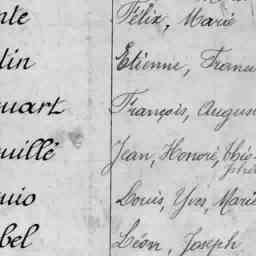 nte Félix, Marie
tin Etienne, Franc
uart François, August
uillé Jean, Honoré,
uio Louis, Yves, Marie
bel Léon, Joseph